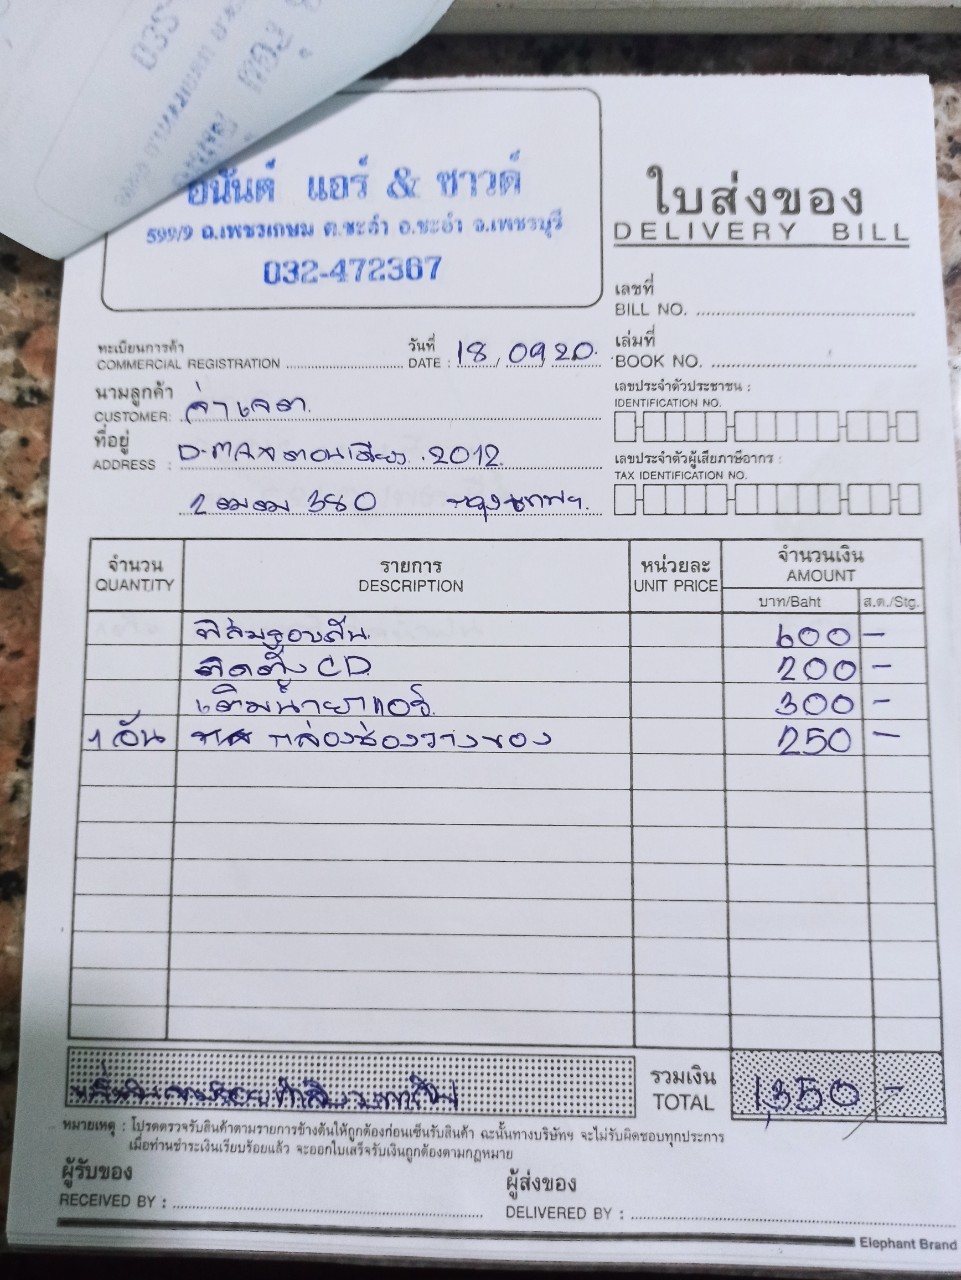 อนันต์ แอร์ & ซาวด์
599/9 ถ.เพชรเกษม ต.ชะอำ อ.ชะอำ จ.เพชรบุรี
032-472367
ใบส่งของ
DELIVERY BILL
เลขที่
BILL NO.
ทะเบียนการค้า
COMMERCIAL REGISTRATION
วันที่
DATE : 18/09 20.
เล่มที่
BOOK NO.
นามลูกค้า
CUSTOMER: จ่าเจต
เลขประจำตัวประชาชน :
IDENTIFICATION NO.
ที่อยู่
ADDRESS : D-MAX ตอนเดียว 2012
380 กรุงเทพฯ
เลขประจำตัวผู้เสียภาษีอากร :
TAX IDENTIFICATION NO.
จำนวน
QUANTITY
รายการ
DESCRIPTION
หน่วยละ
UNIT PRICE
จำนวนเงิน
AMOUNT
บาท/Baht ส.ต./Stg.
ฟิล์มรอบคัน 600 -
ติดตั้ง CD 200 -
เติมน้ำยาแอร์ 300 -
1 อัน กล่องช่องวางของ 250 -
หนึ่งพันสามร้อยห้าสิบบาทถ้วน
รวมเงิน
TOTAL 1,350 -
หมายเหตุ : โปรดตรวจรับสินค้าตามรายการข้างต้นให้ถูกต้องก่อนเซ็นรับสินค้า ฉะนั้นทางบริษัทฯ จะไม่รับผิดชอบทุกประการ
เมื่อท่านชำระเงินเรียบร้อยแล้ว จะออกใบเสร็จรับเงินถูกต้องตามกฎหมาย
ผู้รับของ
RECEIVED BY :
ผู้ส่งของ
DELIVERED BY :
Elephant Brand